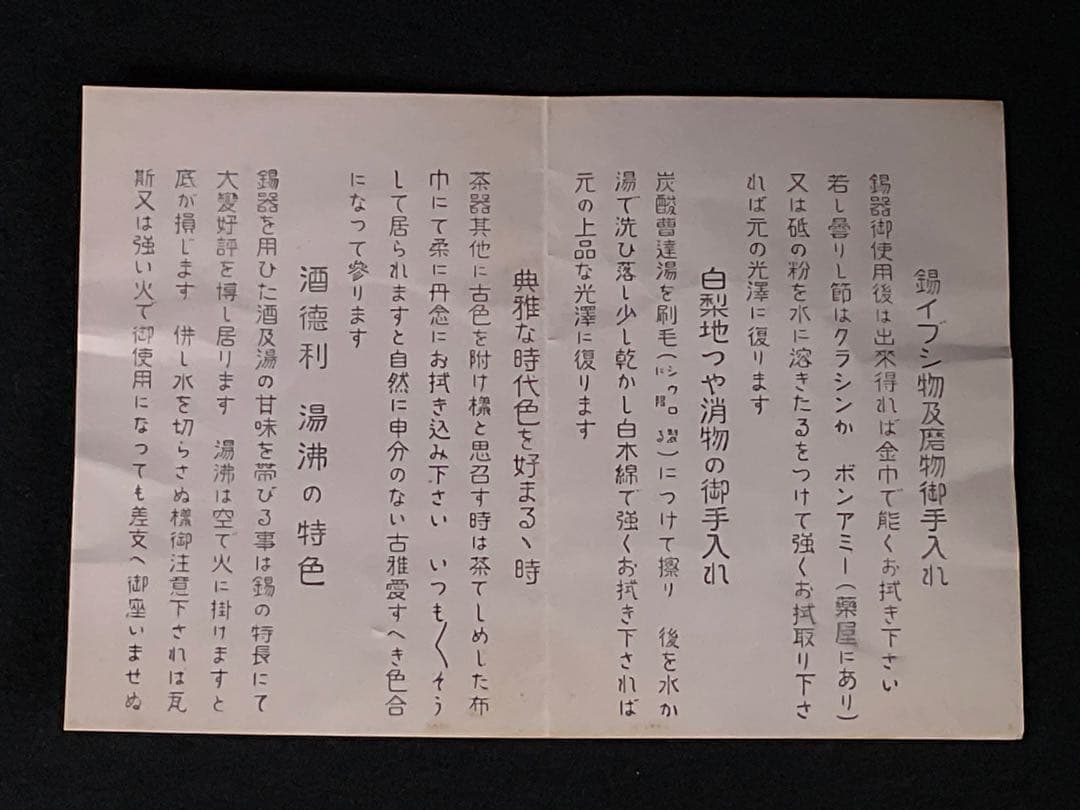 錫イブシ物及磨物御手入れ
錫器御使用後は出來得れば金巾で能くお拭き下さい
若し曇りし節はクラシンか　ボンアミー(藥屋にあり)
又は砥の粉を水に溶きたるをつけて強くお拭取り下さ
れば元の光澤に復ります
白梨地つや消物の御手入れ
炭酸曹達湯を刷毛(シウロに限る)につけて擦り　後を水か
湯で洗ひ落し少し乾かし白木綿で強くお拭き下されば
元の上品な光澤に復ります
典雅な時代色を好まるヽ時
茶器其他に古色を附け樣と思召す時は茶でしめした布
巾にて柔に丹念にお拭き込み下さい　いつも〱そう
して居られますと自然に申分のない古雅愛すへき色合
になつて參ります
酒德利　湯沸の特色
錫器を用ひた酒及湯の甘味を帶びる事は錫の特長にて
大變好評を博し居ります　湯沸は空で火に掛けますと
底が損じます　併し水を切らさぬ樣御注意下されは瓦
斯又は強い火で御使用になつても差支へ御座いませぬ